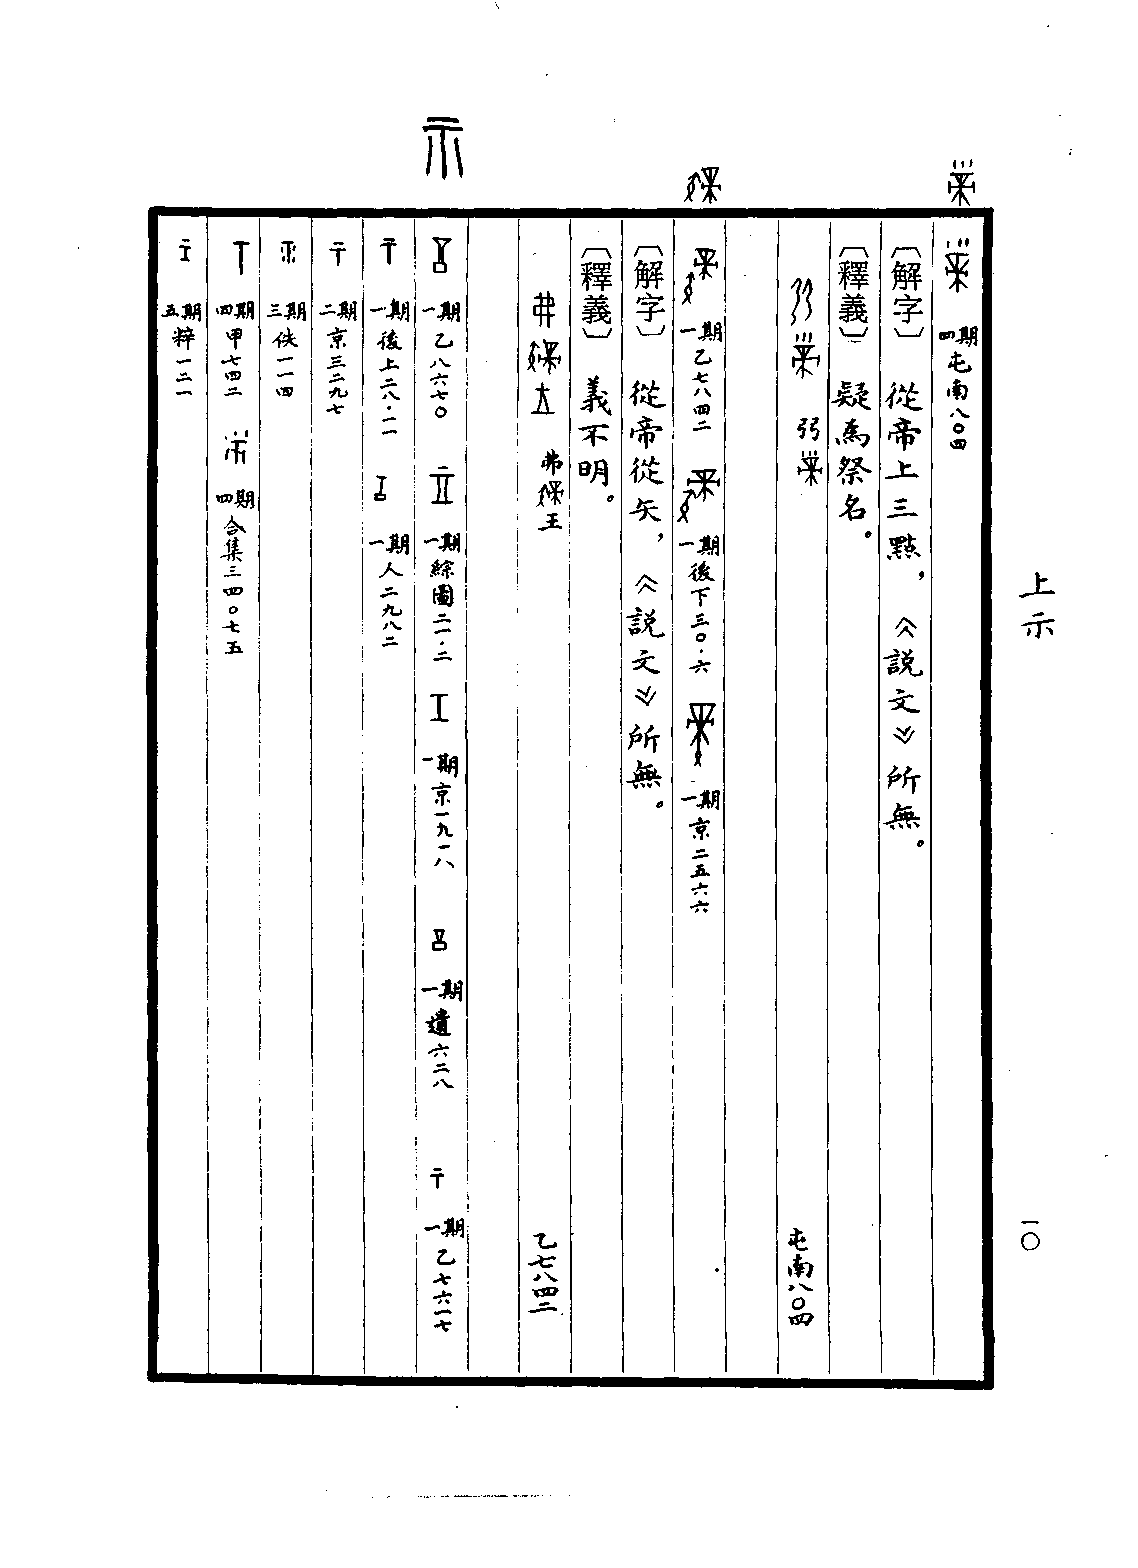 上示
一〇
四期屯南八〇四
〔解字〕 從帝上三點，《說文》所無。
〔釋義〕 疑為祭名。
弜 屯南八〇四
一期乙七八四二 一期後下三〇·六 一期京二五六六
〔解字〕 從帝從矢，《說文》所無。
〔釋義〕 義不明。
弗 王 乙七八四二
一期乙八六七〇 一期綜圖二一·二 一期京一九一八 一期遺六二八 一期乙七六一七
一期後上二八·一一 一期人二九八二
二期京三二九七
三期佚一一四
四期甲七四二 四期合集三四〇七五
五期粹一二一